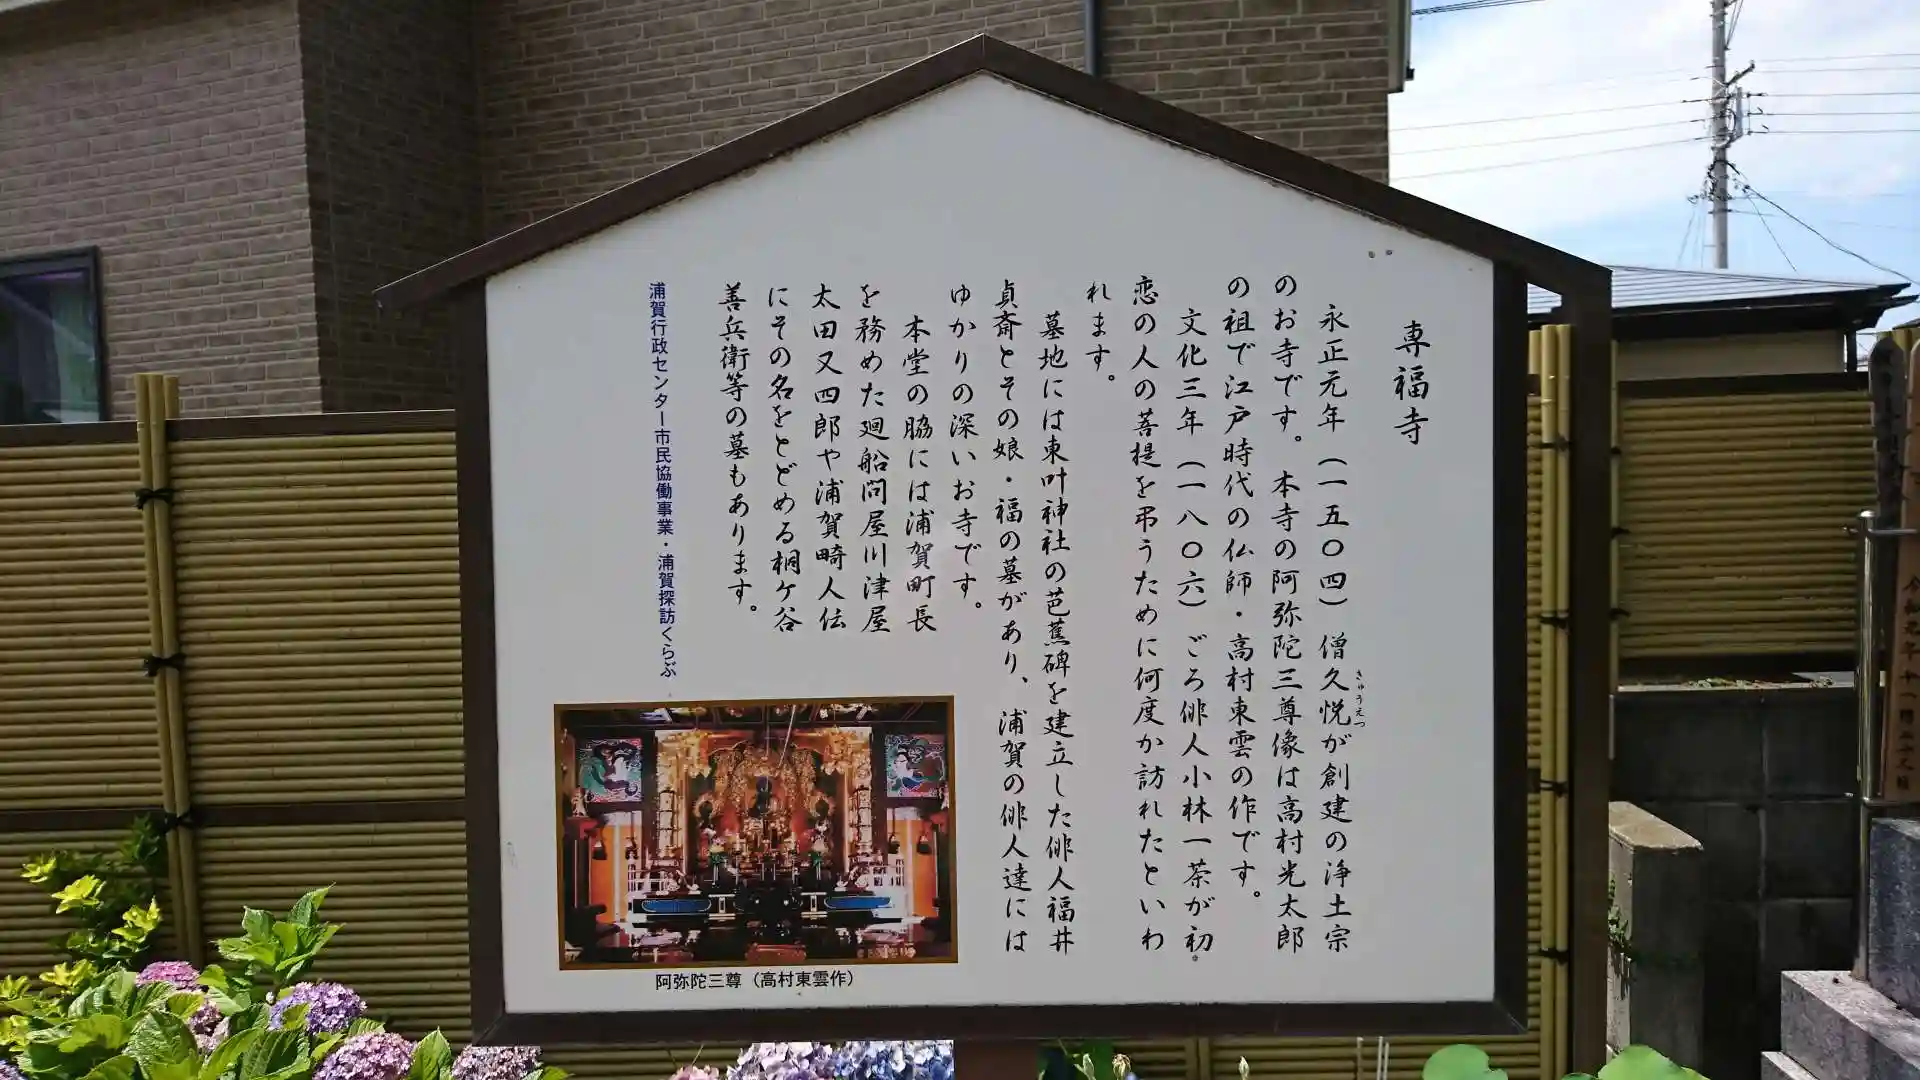 専福寺
永正元年（一五〇四）僧久悦が創建の浄土宗
きゅうえつ
のお寺です。本寺の阿弥陀三尊像は高村光太郎
の祖で江戸時代の仏師・高村東雲の作です。
文化三年（一八〇六）ごろ俳人小林一茶が初
恋の人の菩提を弔うために何度か訪れたといわ
れます。
墓地には東叶神社の芭蕉碑を建立した俳人福井
貞斎とその娘・福の墓があり、浦賀の俳人達には
ゆかりの深いお寺です。
本堂の脇には浦賀町長
を務めた廻船問屋川津屋
太田又四郎や浦賀畸人伝
にその名をとどめる桐ケ谷
善兵衛等の墓もあります。
浦賀行政センター市民協働事業・浦賀探訪くらぶ
阿弥陀三尊（高村東雲作）